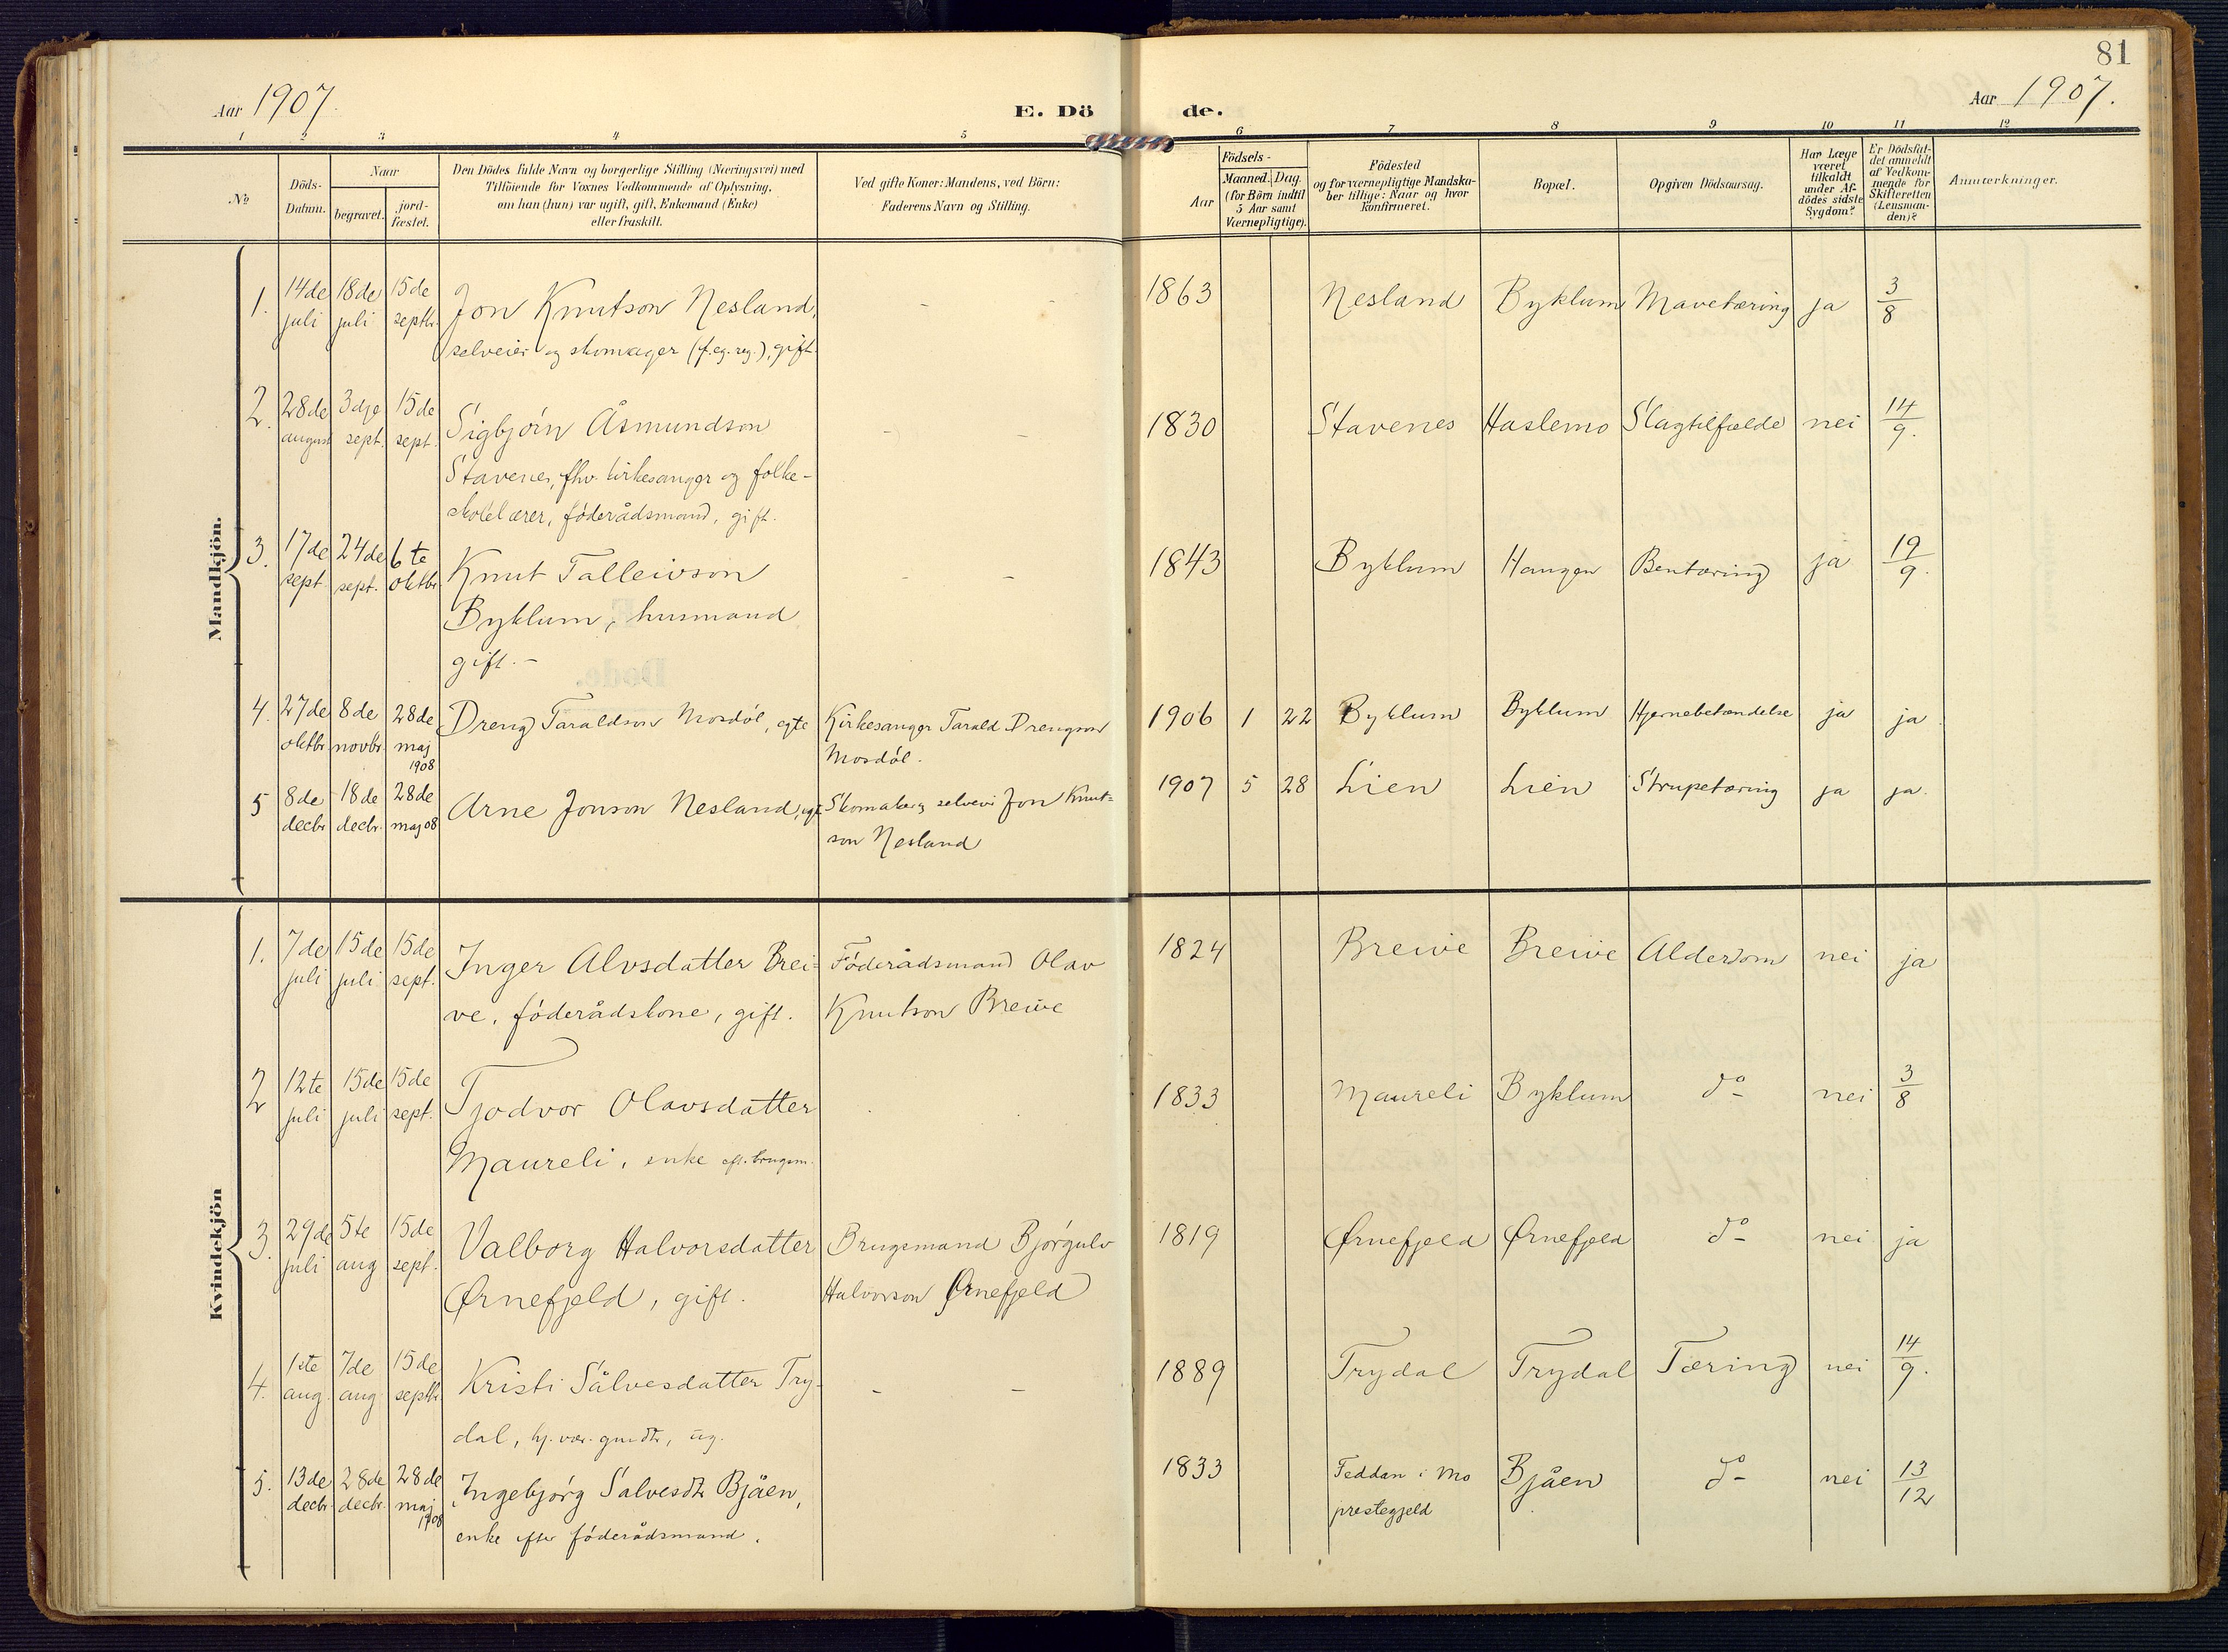 81
Aar 1907.
E. Dö
de.
Aar 1907.
1 2 3 4 5 6 7 8 9 10 11 12
№
Döds-
Datum.
Naar
begravet.
jord-
fæstet.
Den Dödes fulde Navn og borgerlige Stilling (Næringsvei) med
Tilföiende for Voxnes Vedkommende af Oplysning,
om han (hun) var ugift, gift, Enkemand (Enke)
eller fraskilt.
Ved gifte Koner: Mandens, ved Börn:
Faderens Navn og Stilling.
Födsels-
Aar
Maaned. Dag.
(for Börn indtil
5 Aar samt
Værnepligtige).
Födested
og for værnepligtige Mandska-
ber tillige: Naar og hvor
konfirmeret.
Bopæl.
Opgiven Dödsaarsag.
Har Læge
været
tilkaldt
under Af-
dödes sidste
Sygdom?
Er Dödsfal-
det anmeldt
af Vedkom-
mende for
Skifteretten
(Lensman-
den)?
Anmerkninger.
Mandkjön.
1. 14de juli 18de juli 15de septbr. Jon Knutson Nesland, - - 1863 Nesland Byklum Mavetæring ja 3/8
selveier og skomager (f.eg.reg.), gift.
2. 28de august 3dje sept. 15de sept. Sigbjörn Åsmundson - - 1830 Stavenes Haslemo Slagtilfælde nei 14/9.
Stavenes, fhv. kirkesanger og folke-
skolelærer, föderådsmand, gift.
3. 17de sept. 24de sept. 6te oktbr. Knut Talleivson - - 1843 Byklum Haugen Bentæring ja 19/9.
Byklum, husmand
gift. -
4. 27de oktbr. 8de novbr. 28de maj 1908 Dreng Taraldson Mosdöl, egte Kirkesanger Tarald Drengson 1906 1 22 Byklum Byklum Hjernebetændelse ja ja
Mosdöl.
5 8de decbr. 18de decbr. 28de maj 08 Arne Jonson Nesland, egt. Skomaker, selveier Jon Knut- 1907 5 28 Lien Lien Strupetæring ja ja.
son Nesland
Kvindekjön
1. 7de juli 15de juli 15de sept. Inger Alvsdatter Brei= Föderådsmand Olav 1824 Breive Breive Alderdom nei ja
ve, föderådskone, gift. Knutson Breive
2 12te juli 15de juli 15de sept. Tjodvor Olavsdatter 1833 Maureli Byklum do nei 3/8
Maureli, enke eft. brugsm.
3. 29de juli 5te aug 15de sept. Valborg Halvorsdatter Brugsmand Björgulv 1819 Ørnefjeld Ørnefjeld do nei ja
Ørnefjeld, gift. Halvorson Ørnefjeld
4. 1ste aug. 7de aug 15de septbr. Kristi Sålvesdatter Try- - - 1889 Trydal Trydal Tæring nei 14/9.
dal, hj. vær. gmdtr, ug.
5. 13de decbr. 28de decbr. 28de maj 1908 Ingebjörg Salvesdtr Bjåen, 1833 Feddan i Mo Bjåen do nei 13/12
enke efter föderådsmand. prestegjeld